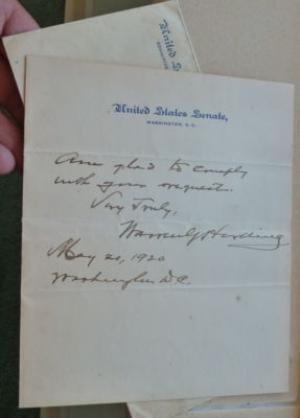 United States
United States Senate,
WASHINGTON, D.C.
Am glad to comply
with your request.
Very Truly,
Warren G Harding
May 20, 1920
Washington D.C.